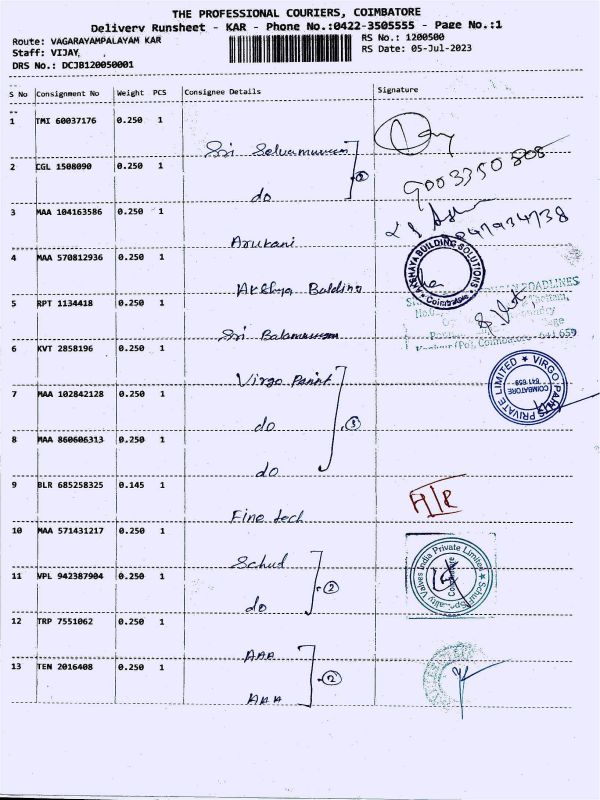 THE PROFESSIONAL COURIERS, COIMBATORE
Delivery Runsheet - KAR - Phone No.:0422-3505555 - Page No.:1
Route: VAGARAYAMPALAYAM KAR
RS No.: 1200500
Staff: VIJAY,
RS Date: 05-Jul-2023
DRS No.: DCJB120050001
S No Consignment No Weight PCS Consignee Details Signature
1 TMI 60037176 0.250 1
Sri Selvamurugan
2 CGL 1508090 0.250 1
do
2
9003350808
3 MAA 104163586 0.250 1
Arukani
4 MAA 570812936 0.250 1
Akshya Building
AKSHAYA BUILDING SOLUTIONS
Coimbatore
5 RPT 1134418 0.250 1
Sri Balamurugan
ROADLINES
641 659
6 KVT 2858196 0.250 1
Virgo Paint
7 MAA 102842128 0.250 1
do
3
8 MAA 860606313 0.250 1
do
VIRGO PAINTS PRIVATE LIMITED
COIMBATORE
641 659
9 BLR 685258325 0.145 1
Fine tech
10 MAA 571431217 0.250 1
Schuf
11 VPL 942387904 0.250 1
do
2
Schuf Speciality Valves India Private Limited
Coimbatore
12 TRP 7551062 0.250 1
AAA
13 TEN 2016408 0.250 1
AAA
2